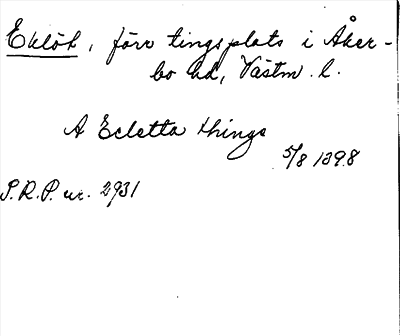 Eklöt, förr tingsplats i Åker-
bo hd, Västm. l.
A Ecletta thinge
5/8 1398
S.R.P. nr. 2931